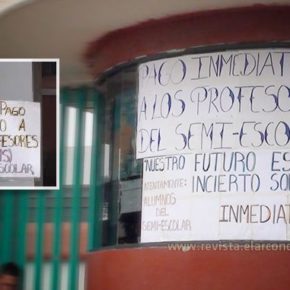 PAGO
O A
FESORES
ESCOLAR
PAGO INMEDIAT
A LOS PROFESO
DEL SEMI-ESCO
NUESTRO FUTURO ES
INCIERTO SO
ATENTAMENTE:
ALUMNOS
DEL
SEMI-ESCOLAR
INMEDIAT
www.revista.elarcon